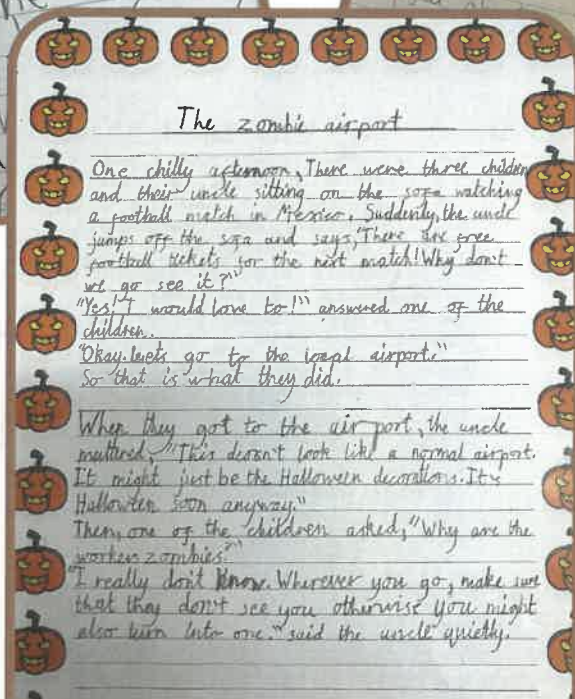 The zombie airport
One chilly afternoon, There were three children
and their uncle sitting on the sofa watching
a football match in Mexico. Suddenly, the uncle
jumps off the sofa and says, "There are free
football tickets for the next match! Why don't
we go see it?"
"Yes! I would love to!" answered one of the
children.
"Okay. Let's go to the local airport."
So that is what they did.
When they got to the airport, the uncle
muttered, "This doesn't look like a normal airport.
It might just be the Halloween decorations. It's
Halloween soon anyway."
Then, one of the children asked, "Why are the
workers zombies?"
"I really don't know. Wherever you go, make sure
that they don't see you otherwise you might
also turn into one." said the uncle quietly.